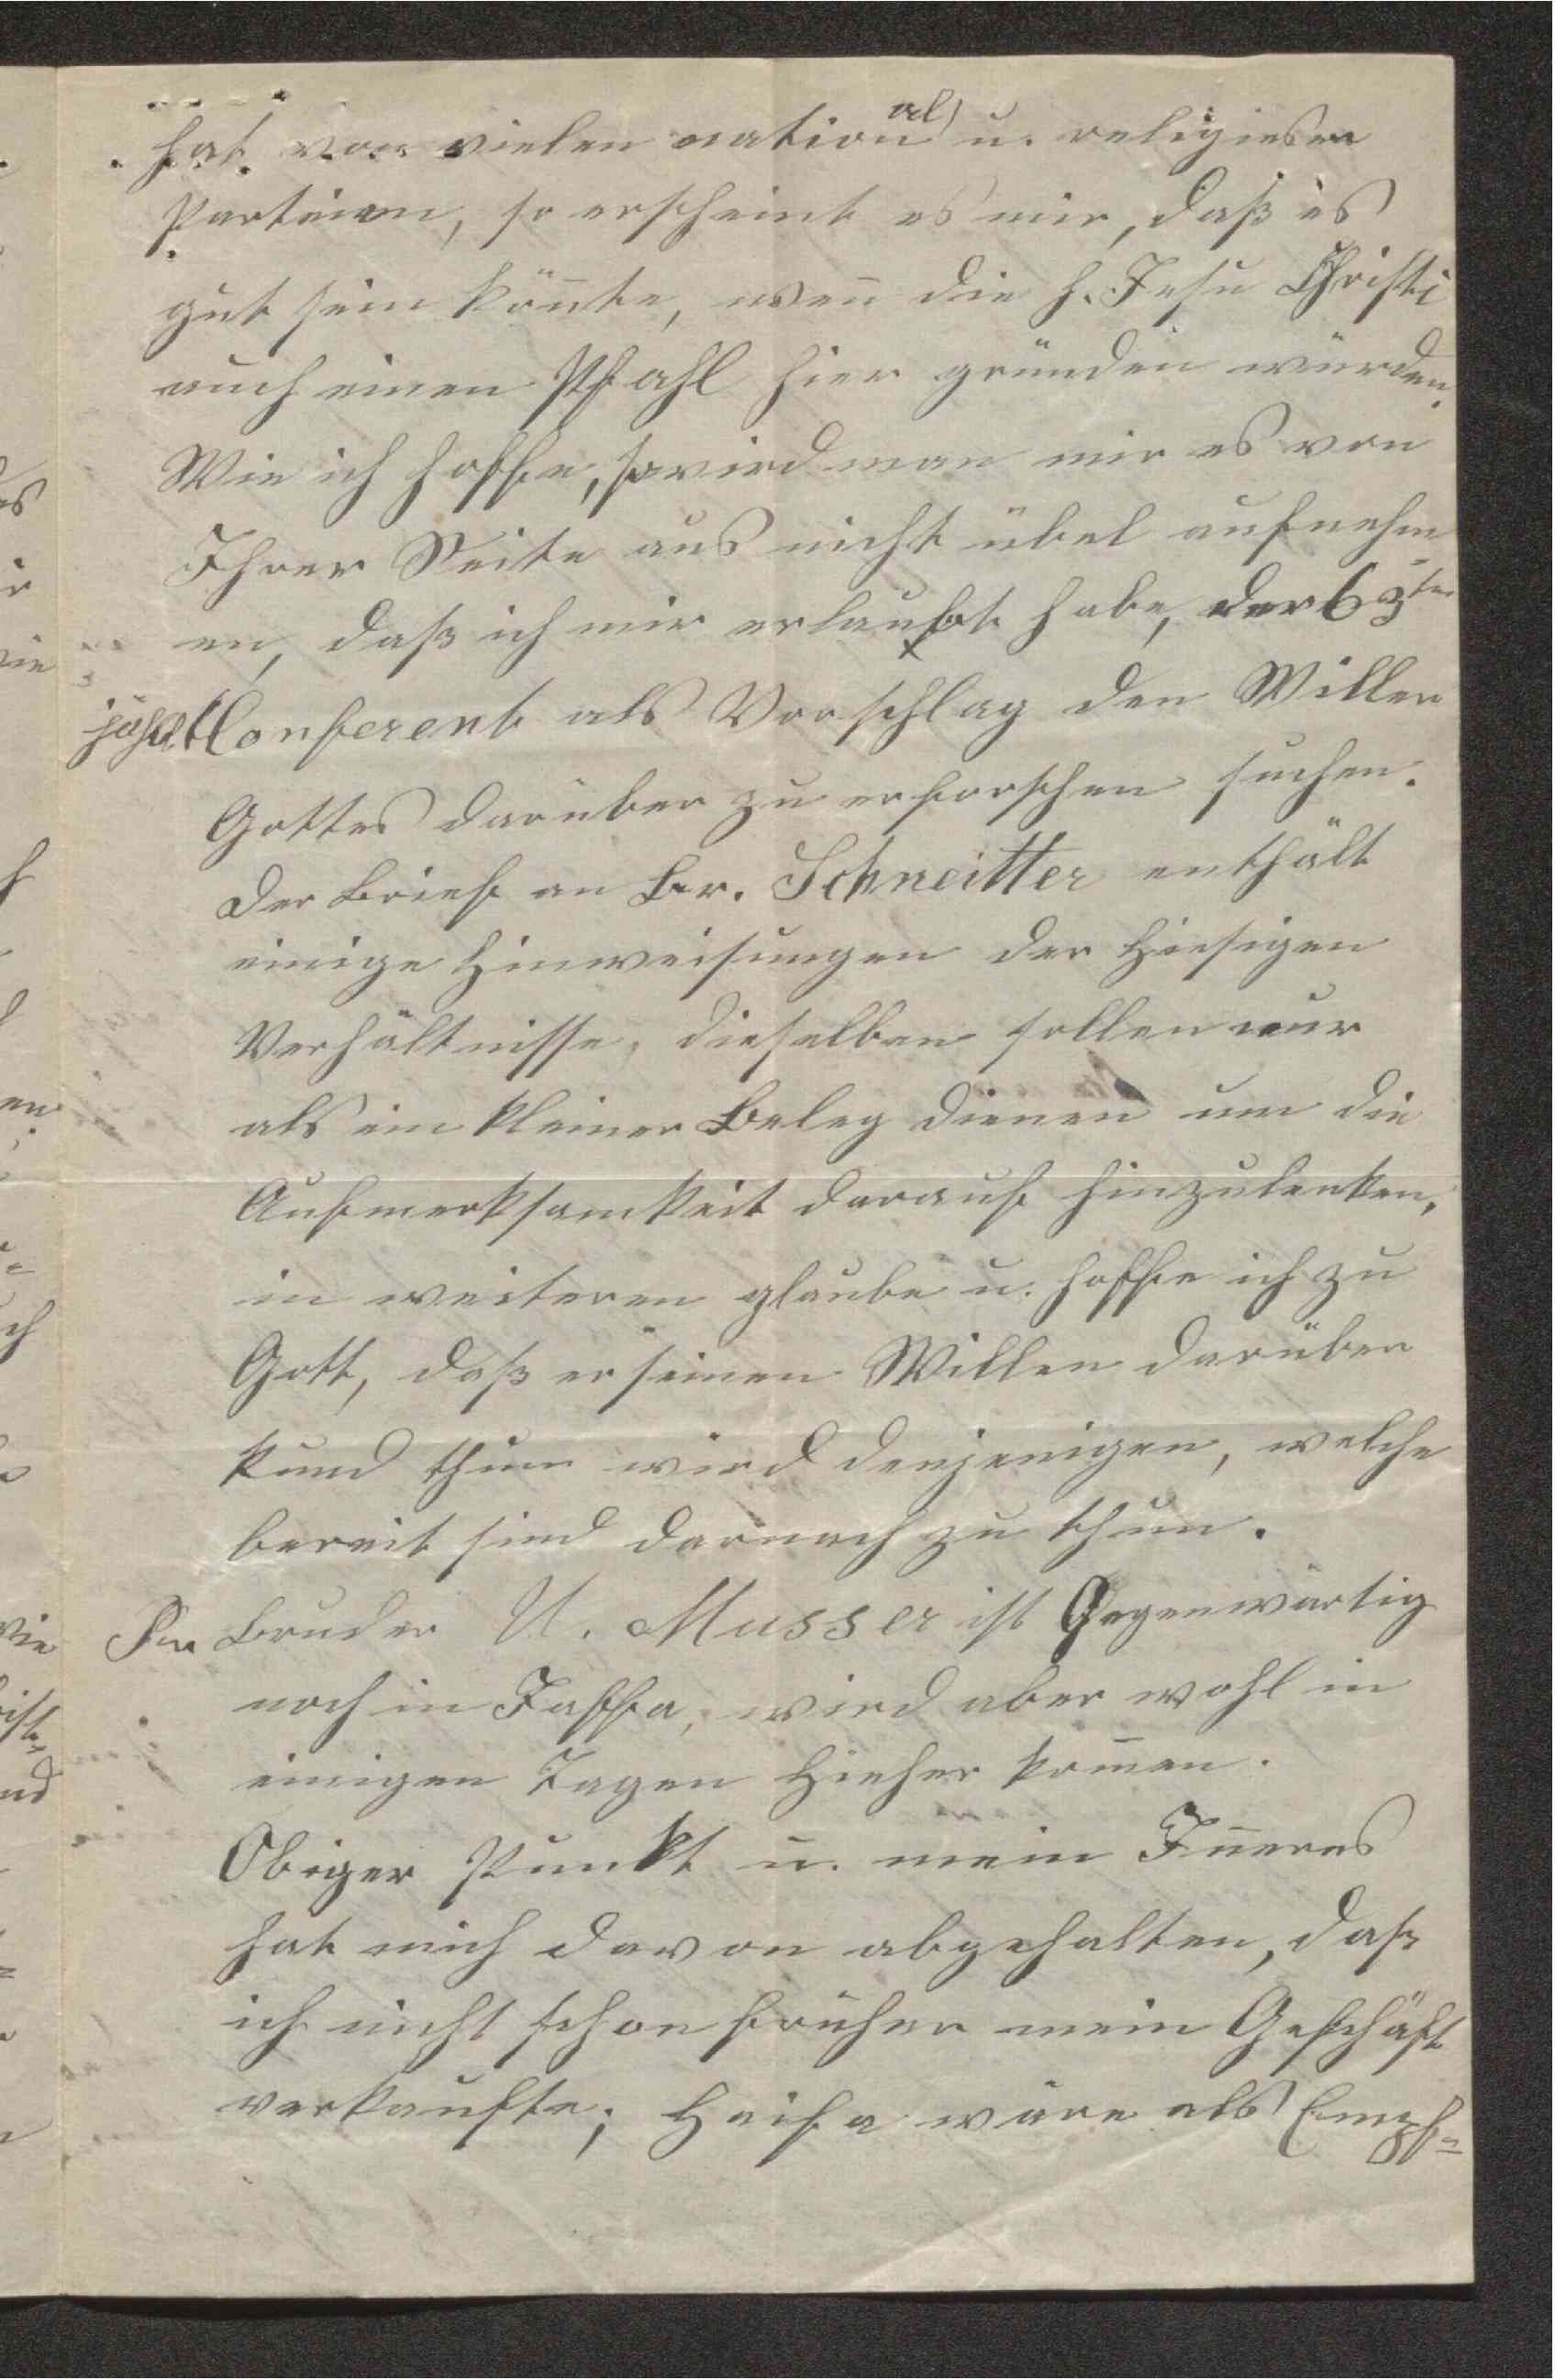 hat von vielen national u. religiesen
Parteien, so erscheint es mir, daß es
gut sein kön̄te, wen̄ die H. Jesu Christi
auch einen Pfahl hier gründen würden.
Wie ich hoffe, so wird man mir es von
Ihrer Seite aus nicht übel aufnehm
en, daß ich mir erlaubt habe, der 63ten
jährl. Conferent als Vorschlag den Willen
Gottes darüber zu erforschen suchen.
Der Brief an Br. Schneitter enthält
einige Hinweisungen der Hiesigen
Verhältnisse, dieselben sollen nur
als ein kleiner Beleg dienen um die
Aufmerksamkeit darauf hinzulenken,
im weiteren glaube u. hoffe ich zu
Gott, daß er seinen Willen darüber
kund thun wird denjenigen, welche
bereit sind darnach zu thun.
Bruder A. Musser ist Gegenwärtig
noch in Jaffa, wird aber wohl in
einigen Tagen Hieher kom̄en.
Obiger Punkt u. mein In̄eres
hat mich davon abgehalten, daß
ich nicht schon früher mein Geschäft
verkaufte; Haifa wäre als Empf=